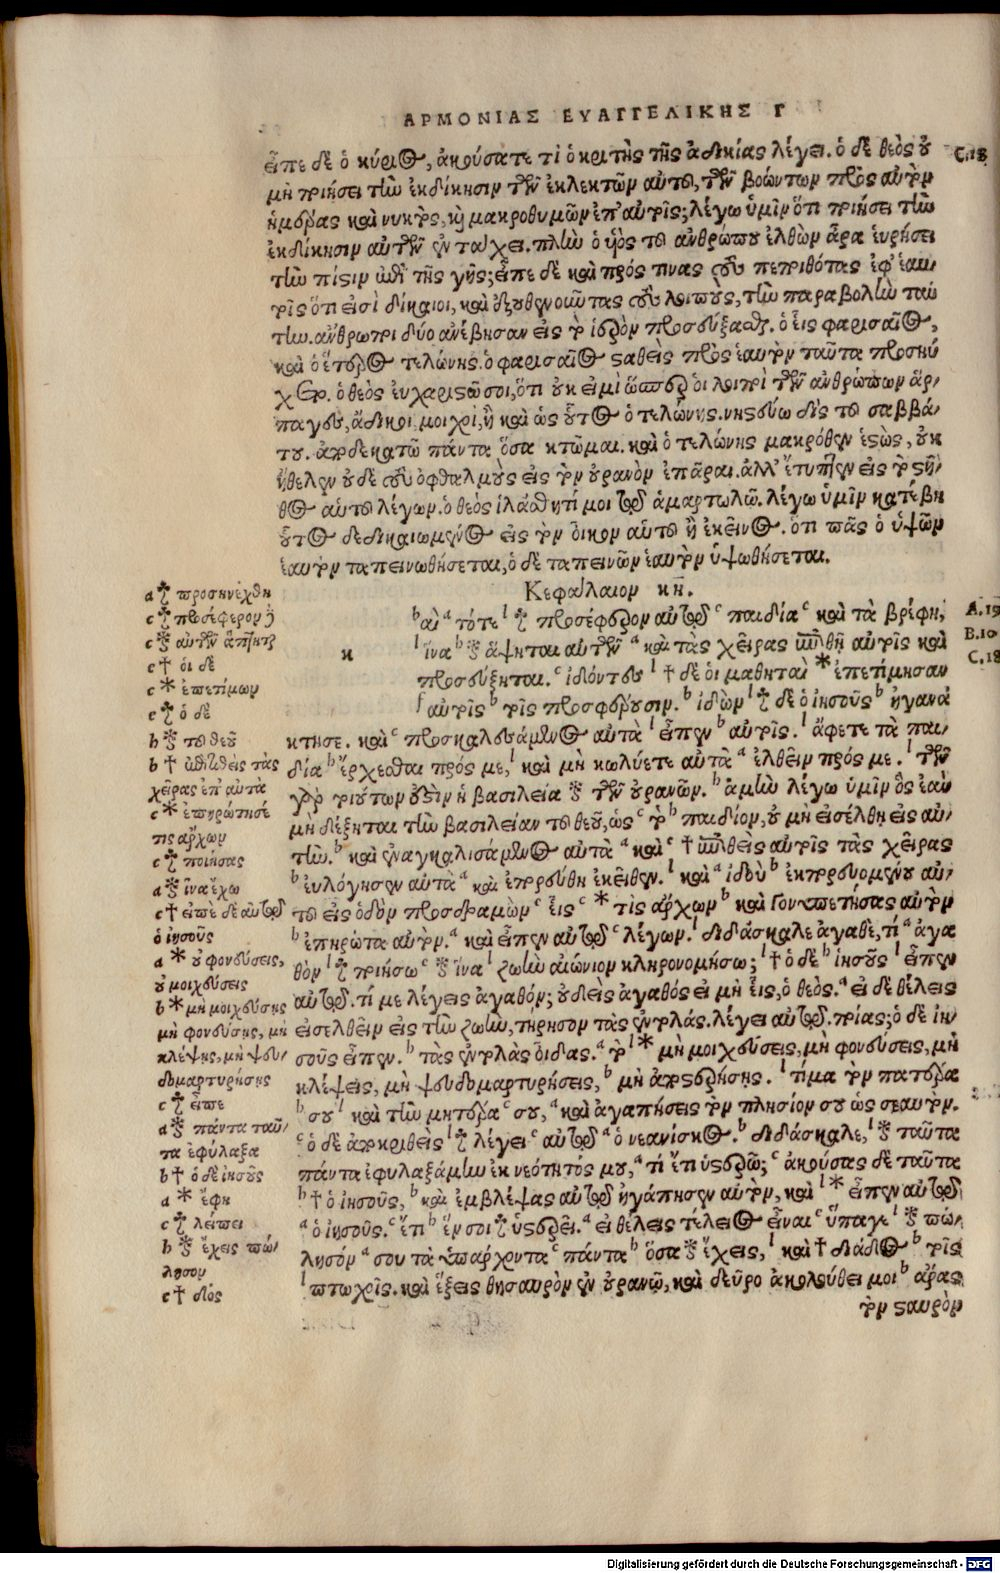 ΑΡΜΟΝΙΑΣ ΕΥΑΓΓΕΛΙΚΗΣ Γ
εἶπε δὲ ὁ κύριος, ἀκούσατε τί ὁ κριτὴς τῆς ἀδικίας λέγει. ὁ δὲ θεὸς οὐ
C.18.
μὴ ποιήσει τὴν ἐκδίκησιν τῶν ἐκλεκτῶν αὐτοῦ, τῶν βοώντων πρὸς αὐτὸν
ἡμέρας καὶ νυκτὸς, καὶ μακροθυμῶν ἐπ' αὐτοῖς; λέγω ὑμῖν ὅτι ποιήσει τὴν
ἐκδίκησιν αὐτῶν ἐν τάχει. πλὴν ὁ υἱὸς τοῦ ἀνθρώπου ἐλθὼν ἆρα εὑρήσει
τὴν πίστιν ἐπὶ τῆς γῆς; εἶπε δὲ καὶ πρός τινας τοὺς πεποιθότας ἐφ' ἑαυ/
τοῖς ὅτι εἰσὶ δίκαιοι, καὶ ἐξουθενοῦντας τοὺς λοιποὺς, τὴν παραβολὴν ταύ
την. ἄνθρωποι δύο ἀνέβησαν εἰς τὸ ἱερὸν προσεύξασθαι. ὁ εἷς φαρισαῖος,
καὶ ὁ ἕτερος τελώνης. ὁ φαρισαῖος σταθεὶς πρὸς ἑαυτὸν ταῦτα προσηύ
χετο. ὁ θεὸς εὐχαριστῶ σοι, ὅτι οὐκ εἰμὶ ὥσπερ οἱ λοιποὶ τῶν ἀνθρώπων ἅρ/
παγες, ἄδικοι, μοιχοί, ἢ καὶ ὡς οὗτος ὁ τελώνης. νηστεύω δὶς τοῦ σαββά/
του. ἀποδεκατῶ πάντα ὅσα κτῶμαι. καὶ ὁ τελώνης μακρόθεν ἑστὼς, οὐκ
ἤθελεν οὐδὲ τοὺς ὀφθαλμοὺς εἰς τὸν οὐρανὸν ἐπᾶραι. ἀλλ' ἔτυπτεν εἰς τὸ στῆ/
θος αὑτοῦ λέγων. ὁ θεὸς ἱλάσθητί μοι τῷ ἁμαρτωλῷ. λέγω ὑμῖν κατέβη
οὗτος δεδικαιωμένος εἰς τὸν οἶκον αὑτοῦ ἢ ἐκεῖνος. ὅτι πᾶς ὁ ὑψῶν
ἑαυτὸν ταπεινωθήσεται, ὁ δὲ ταπεινῶν ἑαυτὸν ὑψωθήσεται.
Κεφάλαιον κη.
κ
b αὶ a τότε l ☩ προσέφερον αὐτῷ c παιδία c καὶ τὰ βρέφη,
A.19
l ἵνα b ⚚ ἅψηται αὐτῶν a καὶ τὰς χεῖρας ἐπιθῇ αὐτοῖς καὶ
B.10
προσεύξηται. c ἰδόντες l † δὲ οἱ μαθηταὶ * ἐπετίμησαν
C.18
l αὐτοῖς b τοῖς προσφέρουσιν. b ἰδὼν l ☩ δὲ ὁ ἰησοῦς b ἠγανά
κτησε. καὶ c προσκαλεσάμενος αὐτὰ l εἶπεν b αὐτοῖς. l ἄφετε τὰ παι/
δία b ἔρχεσθαι πρός με, l καὶ μὴ κωλύετε αὐτὰ a ἐλθεῖν πρός με. l τῶν
γὰρ τοιούτων ἐστὶν ἡ βασιλεία ⚚ τῶν οὐρανῶν. b ἀμὴν λέγω ὑμῖν ὃς ἐὰν
μὴ δέξηται τὴν βασιλείαν τοῦ θεοῦ, ὡς c τὸ b παιδίον, οὐ μὴ εἰσέλθῃ εἰς αὐ/
τήν. b καὶ ἐναγκαλισάμενος αὐτὰ a καὶ c † ἐπιθεὶς αὐτοῖς τὰς χεῖρας
b εὐλόγησεν αὐτὰ a καὶ ἐπορεύθη ἐκεῖθεν. l καὶ a ἰδοὺ b ἐκπορευομένου αὐ/
τοῦ εἰς ὁδὸν προσδραμὼν c εἷς c * τὶς ἄρχων b καὶ γονυπετήσας αὐτὸν
b ἐπηρώτα αὐτόν. a καὶ εἶπεν αὐτῷ c λέγων. l διδάσκαλε ἀγαθὲ, τί a ἀγα
θὸν l ☩ ποιήσω c ⚚ ἵνα l ζωὴν αἰώνιον κληρονομήσω; l † ὁ δὲ b ἰησοῦς l εἶπεν
αὐτῷ. τί με λέγεις ἀγαθόν; οὐδεὶς ἀγαθός εἰ μὴ εἷς, ὁ θεός. a εἰ δὲ θέλεις
εἰσελθεῖν εἰς τὴν ζωὴν, τήρησον τὰς ἐντολάς. λέγει αὐτῷ. ποίας; ὁ δὲ ἰη/
σοῦς εἶπεν. b τὰς ἐντολὰς οἶδας. a τὸ l * μὴ μοιχεύσεις, μὴ φονεύσεις, μὴ
κλέψεις, μὴ ψευδομαρτυρήσεις, b μὴ ἀποστερήσῃς. l τίμα τὸν πατέρα
b σου l καὶ τὴν μητέρα c σου, a καὶ ἀγαπήσεις τὸν πλησίον σου ὡς σεαυτόν.
c ὁ δὲ ἀποκριθεὶς l ☩ λέγει c αὐτῷ a ὁ νεανίσκος. b διδάσκαλε, l ⚚ ταῦτα
πάντα ἐφυλαξάμην ἐκ νεότητός μου, a τί ἔτι ὑστερῶ; c ἀκούσας δὲ ταῦτα
b † ὁ ἰησοῦς, b καὶ ἐμβλέψας αὐτῷ ἠγάπησεν αὐτὸν, καὶ l * εἶπεν αὐτῷ
a ὁ ἰησοῦς. c ἔτι b ἕν σοι ☩ ὑστερεῖ. a εἰ θέλεις τέλειος εἶναι c ὕπαγε l ⚚ πώ/
λησόν a σου τὰ ὑπάρχοντα c πάντα b ὅσα ⚚ ἔχεις, l καὶ † διάδος b τοῖς
l πτωχοῖς. καὶ ἕξεις θησαυρὸν ἐν οὐρανῷ, καὶ δεῦρο ἀκολούθει μοι b ἄρας
τὸν σταυρὸν
a ☩ προσηνέχθη
c ☩ προσέφερον δὲ
c ⚚ αὐτῶν ἅπτηται
c † οἱ δὲ
c * ἐπετίμων
c ☩ ὁ δὲ
b ⚚ τοῦ θεοῦ
b † ἐπιτιθεὶς τὰς
χεῖρας ἐπ' αὐτὰ
c * ἐπηρώτησέ
τις ἄρχων
c ☩ ποιήσας
a ⚚ ἵνα ἔχω
c † εἶπε δὲ αὐτῷ
ὁ ἰησοῦς
a * οὐ φονεύσεις,
οὐ μοιχεύσεις
b * μὴ μοιχεύσῃς
μὴ φονεύσῃς, μὴ
κλέψῃς, μὴ ψευ/
δομαρτυρήσῃς
c ☩ εἶπε
a ⚚ πάντα ταῦ/
τα ἐφύλαξα
b † ὁ δὲ ἰησοῦς
a * ἔφη
c ☩ λείπει
b ⚚ ἔχεις πώ/
λησον
c † δὸς
Digitalisierung gefördert durch die Deutsche Forschungsgemeinschaft - DFG